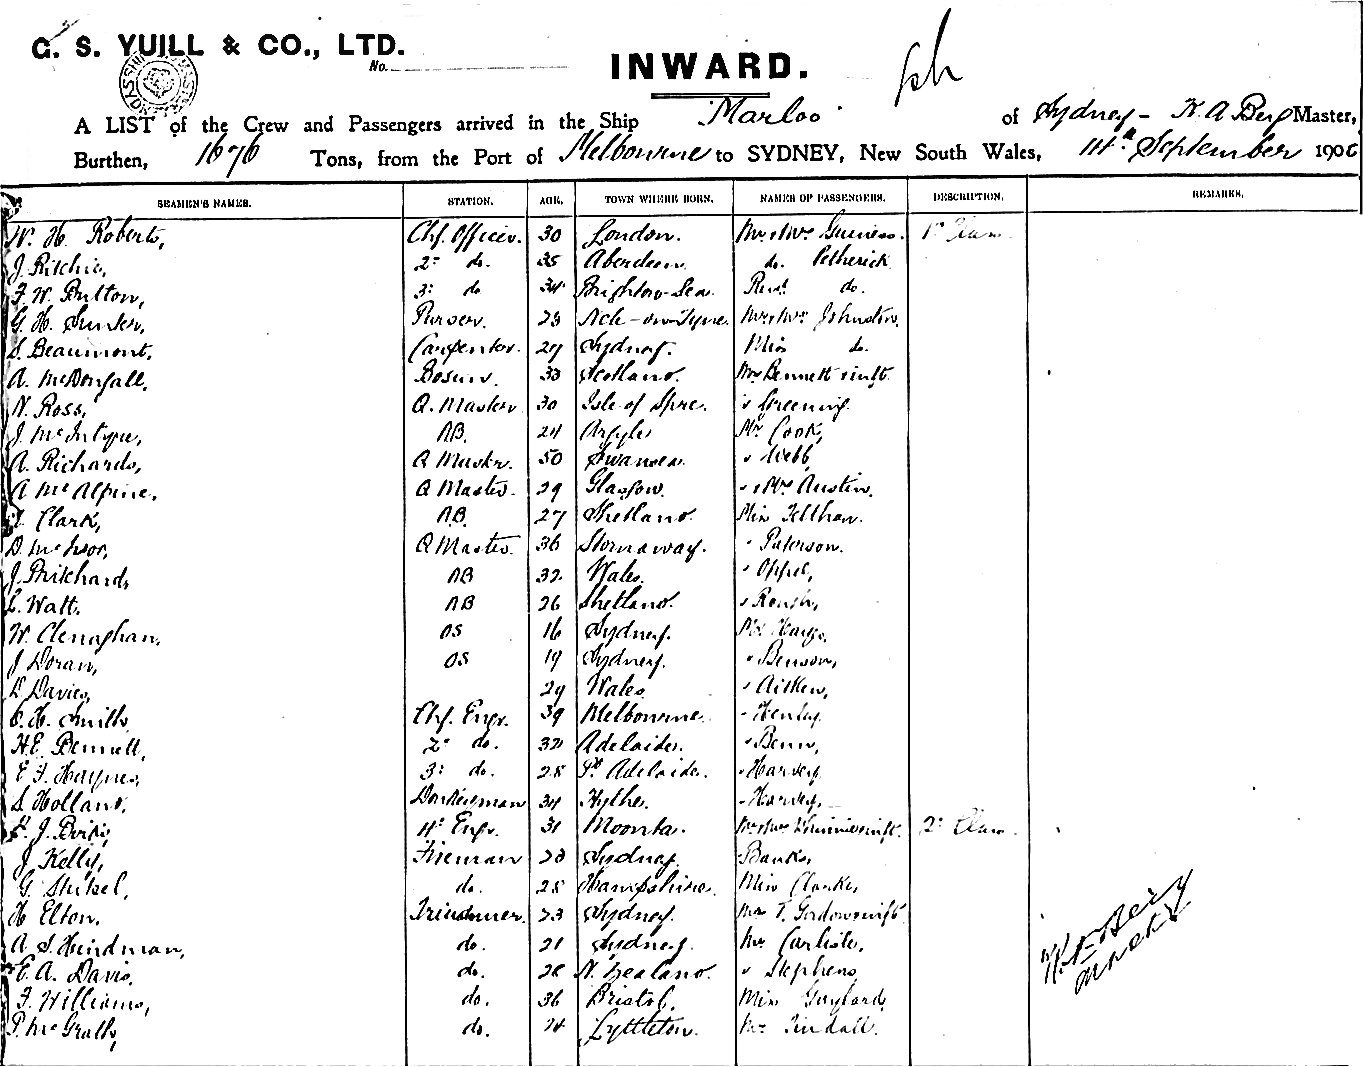 G. S. YUILL & CO., LTD.
No.
INWARD.
A LIST of the Crew and Passengers arrived in the Ship "Marloo" of Sydney - H A Berg Master,
Burthen, 1676 Tons, from the Port of Melbourne to SYDNEY, New South Wales, September 1906
SEAMEN'S NAMES. STATION. AGE. TOWN WHERE BORN. NAMES OF PASSENGERS. DESCRIPTION. REMARKS.
W. H. Roberts, Chf. Officer. 30 London. Mr & Mrs Guiness.
J. Ritchie, 2d do. 35 Aberdeen. do. Petherick
F. W. Button, 3d do 34 Brighton-Sea do.
G. H. Purser. Mr & Mrs Johnston.
S. Beaumont. Carpenter. 29 Sydney. Miss do.
A. McDougall, Bosun. 33 Scotland. Mrs Bennett & inft.
N. Ross, Q. Master 30 Isle of Skye. " Greening.
J. McIntyre, AB. 24 Argyle Mr Cook,
A. Richards, Q Master. 50 Swansea. " Webb,
A McAlpine. Q Master. 29 Glasgow. " & Mrs Austin.
Clark, A.B. 27 Shetland. Miss Feltham.
D. McIvor, Q Master. 36 Stornaway. " Paterson.
J. Pritchard, AB 32 Wales. " Oppel,
L. Watt. AB 26 Shetland. "
W. Clenaghan. OS 16 Sydney. Mr
J Doran, OS 19 Sydney. " Benson,
D Davies, 29 Wales " Aitken,
C. H. Smith, Chf. Engr. 39 Melbourne. " Henley.
H. E. Bennett, 2d do. 32 Adelaide. " Benn,
E. F. Haynes, 3d do. 28 Pt Adelaide. " Harvey
S Holland, Donkeyman 34 Hythe. " Harvey,
J. 4th Engr. 31 Moonta. Mr & Mrs & inft. 2d Class.
J Kelly, Fireman 23 Sydney. " Banks,
G. Shikel, do. 28 Hampshire. Miss Clarke,
H Elton. Trimmer. 23 Sydney. Mrs T. Gordow & inft.
A. S. Hindman, do. 21 Sydney. Mr Carlisle,
E. A. Davis, do. 28 N. Zealand. " Stephens,
F. Williams, do. 36 Bristol. Miss Gaylard,
P. McGrath, do. 24 Lyttleton. Mr Tindall.
H. A. Berg
Master